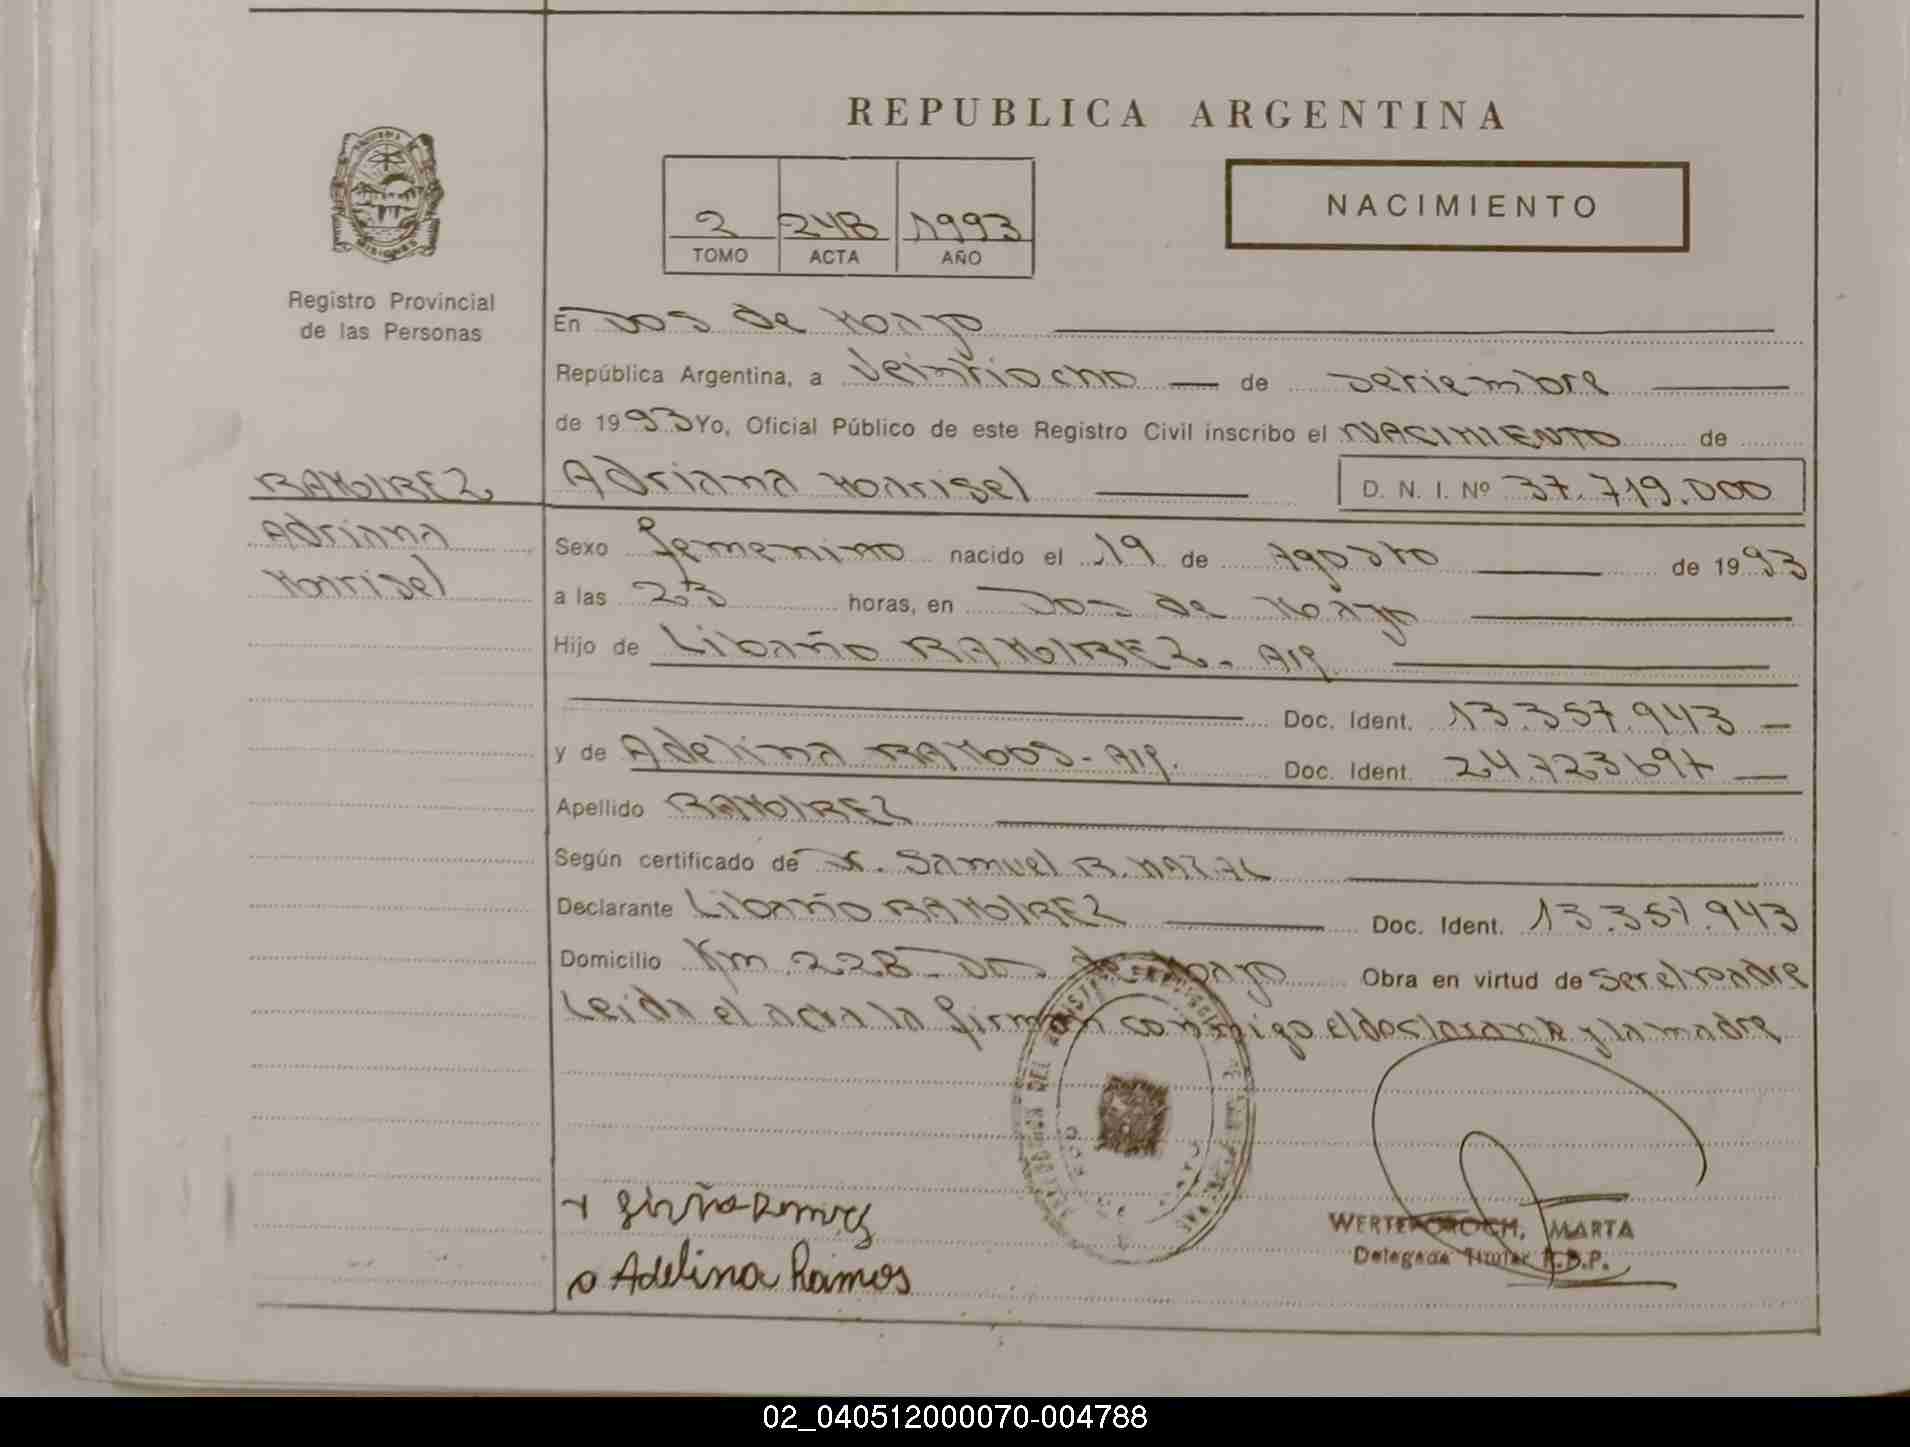 REPUBLICA ARGENTINA
NACIMIENTO
2 248 1993
TOMO ACTA AÑO
Registro Provincial
de las Personas
En Dos de Mayo
República Argentina, a Veintiocho de Setiembre
de 1993 Yo, Oficial Público de este Registro Civil inscribo el NACIMIENTO de
RAMIREZ Adriana Marisel D. N. I. Nº 37.719.000
Adriana
Marisel
Sexo femenino nacido el 19 de Agosto de 1993
a las 23 horas, en Dos de Mayo
Hijo de Libaño RAMIREZ. Arg.
Doc. Ident. 13.357.943
y de Adelina RAMOS - Arg. Doc. Ident. 24.723.697
Apellido RAMIREZ
Según certificado de Dr. Samuel R.
Declarante Libaño RAMIREZ Doc. Ident. 13.357.943
Domicilio Km 228 Dos de Mayo Obra en virtud de ser el padre
Leida el acta la firman conmigo el declarante y la madre
Adelina Ramos
MARTA
Delegada Titular R.D.P.
02_040512000070-004788